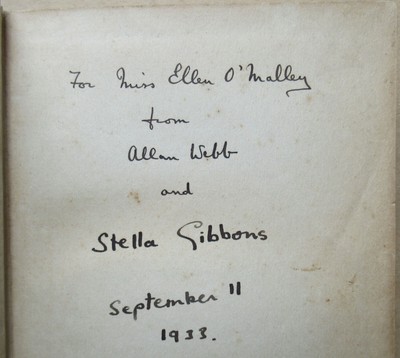 For Miss Ellen O'Malley
from
Allan Webb
and
Stella Gibbons
September 11
1933.